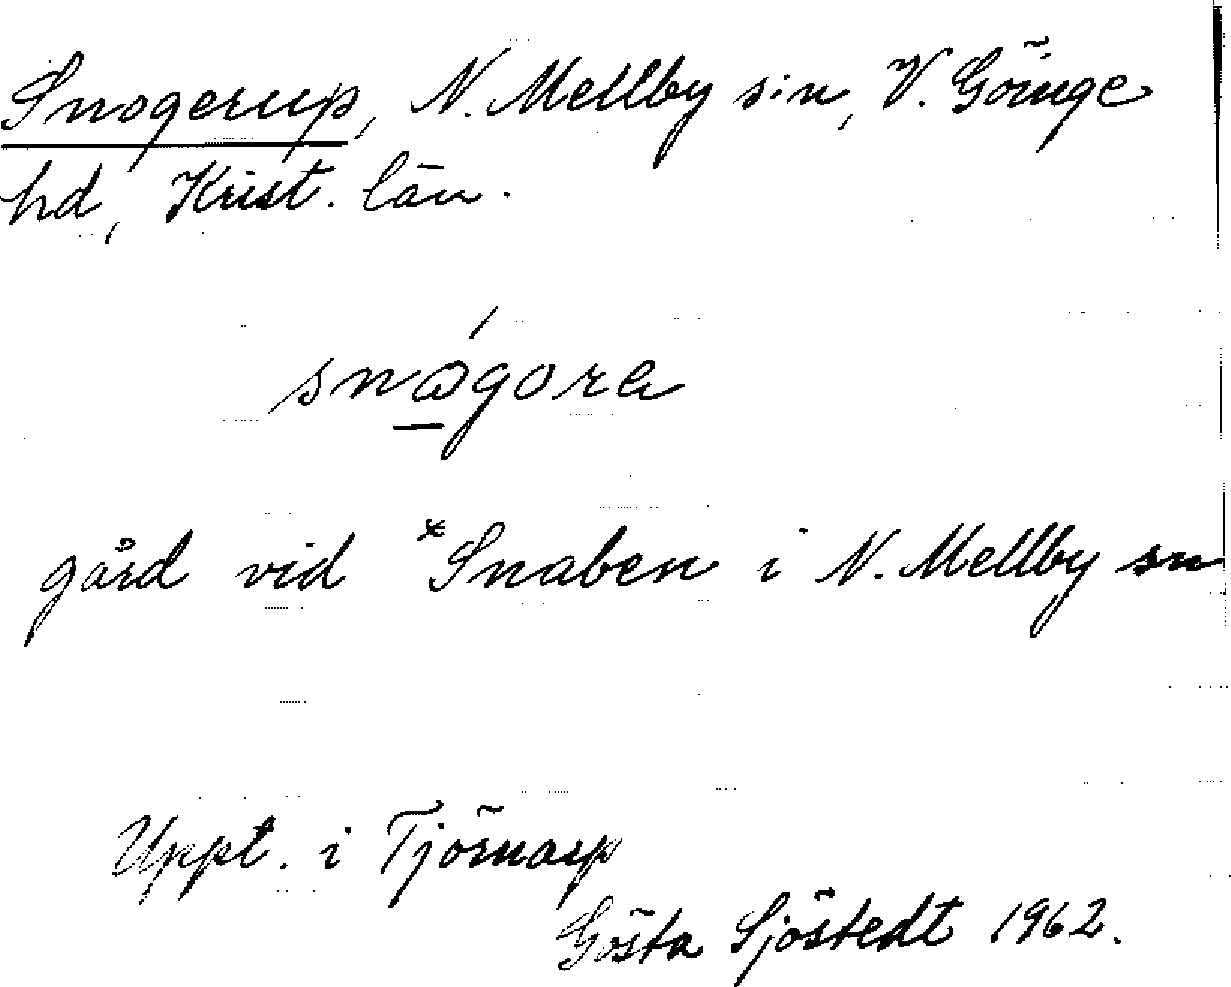 Snogerup, N. Mellby s:n, V. Göinge
hd, Krist. län.
snǿgora
gård vid *Snaben i N. Mellby sn
Uppt. i Tjörnarp
Gösta Sjöstedt 1962.